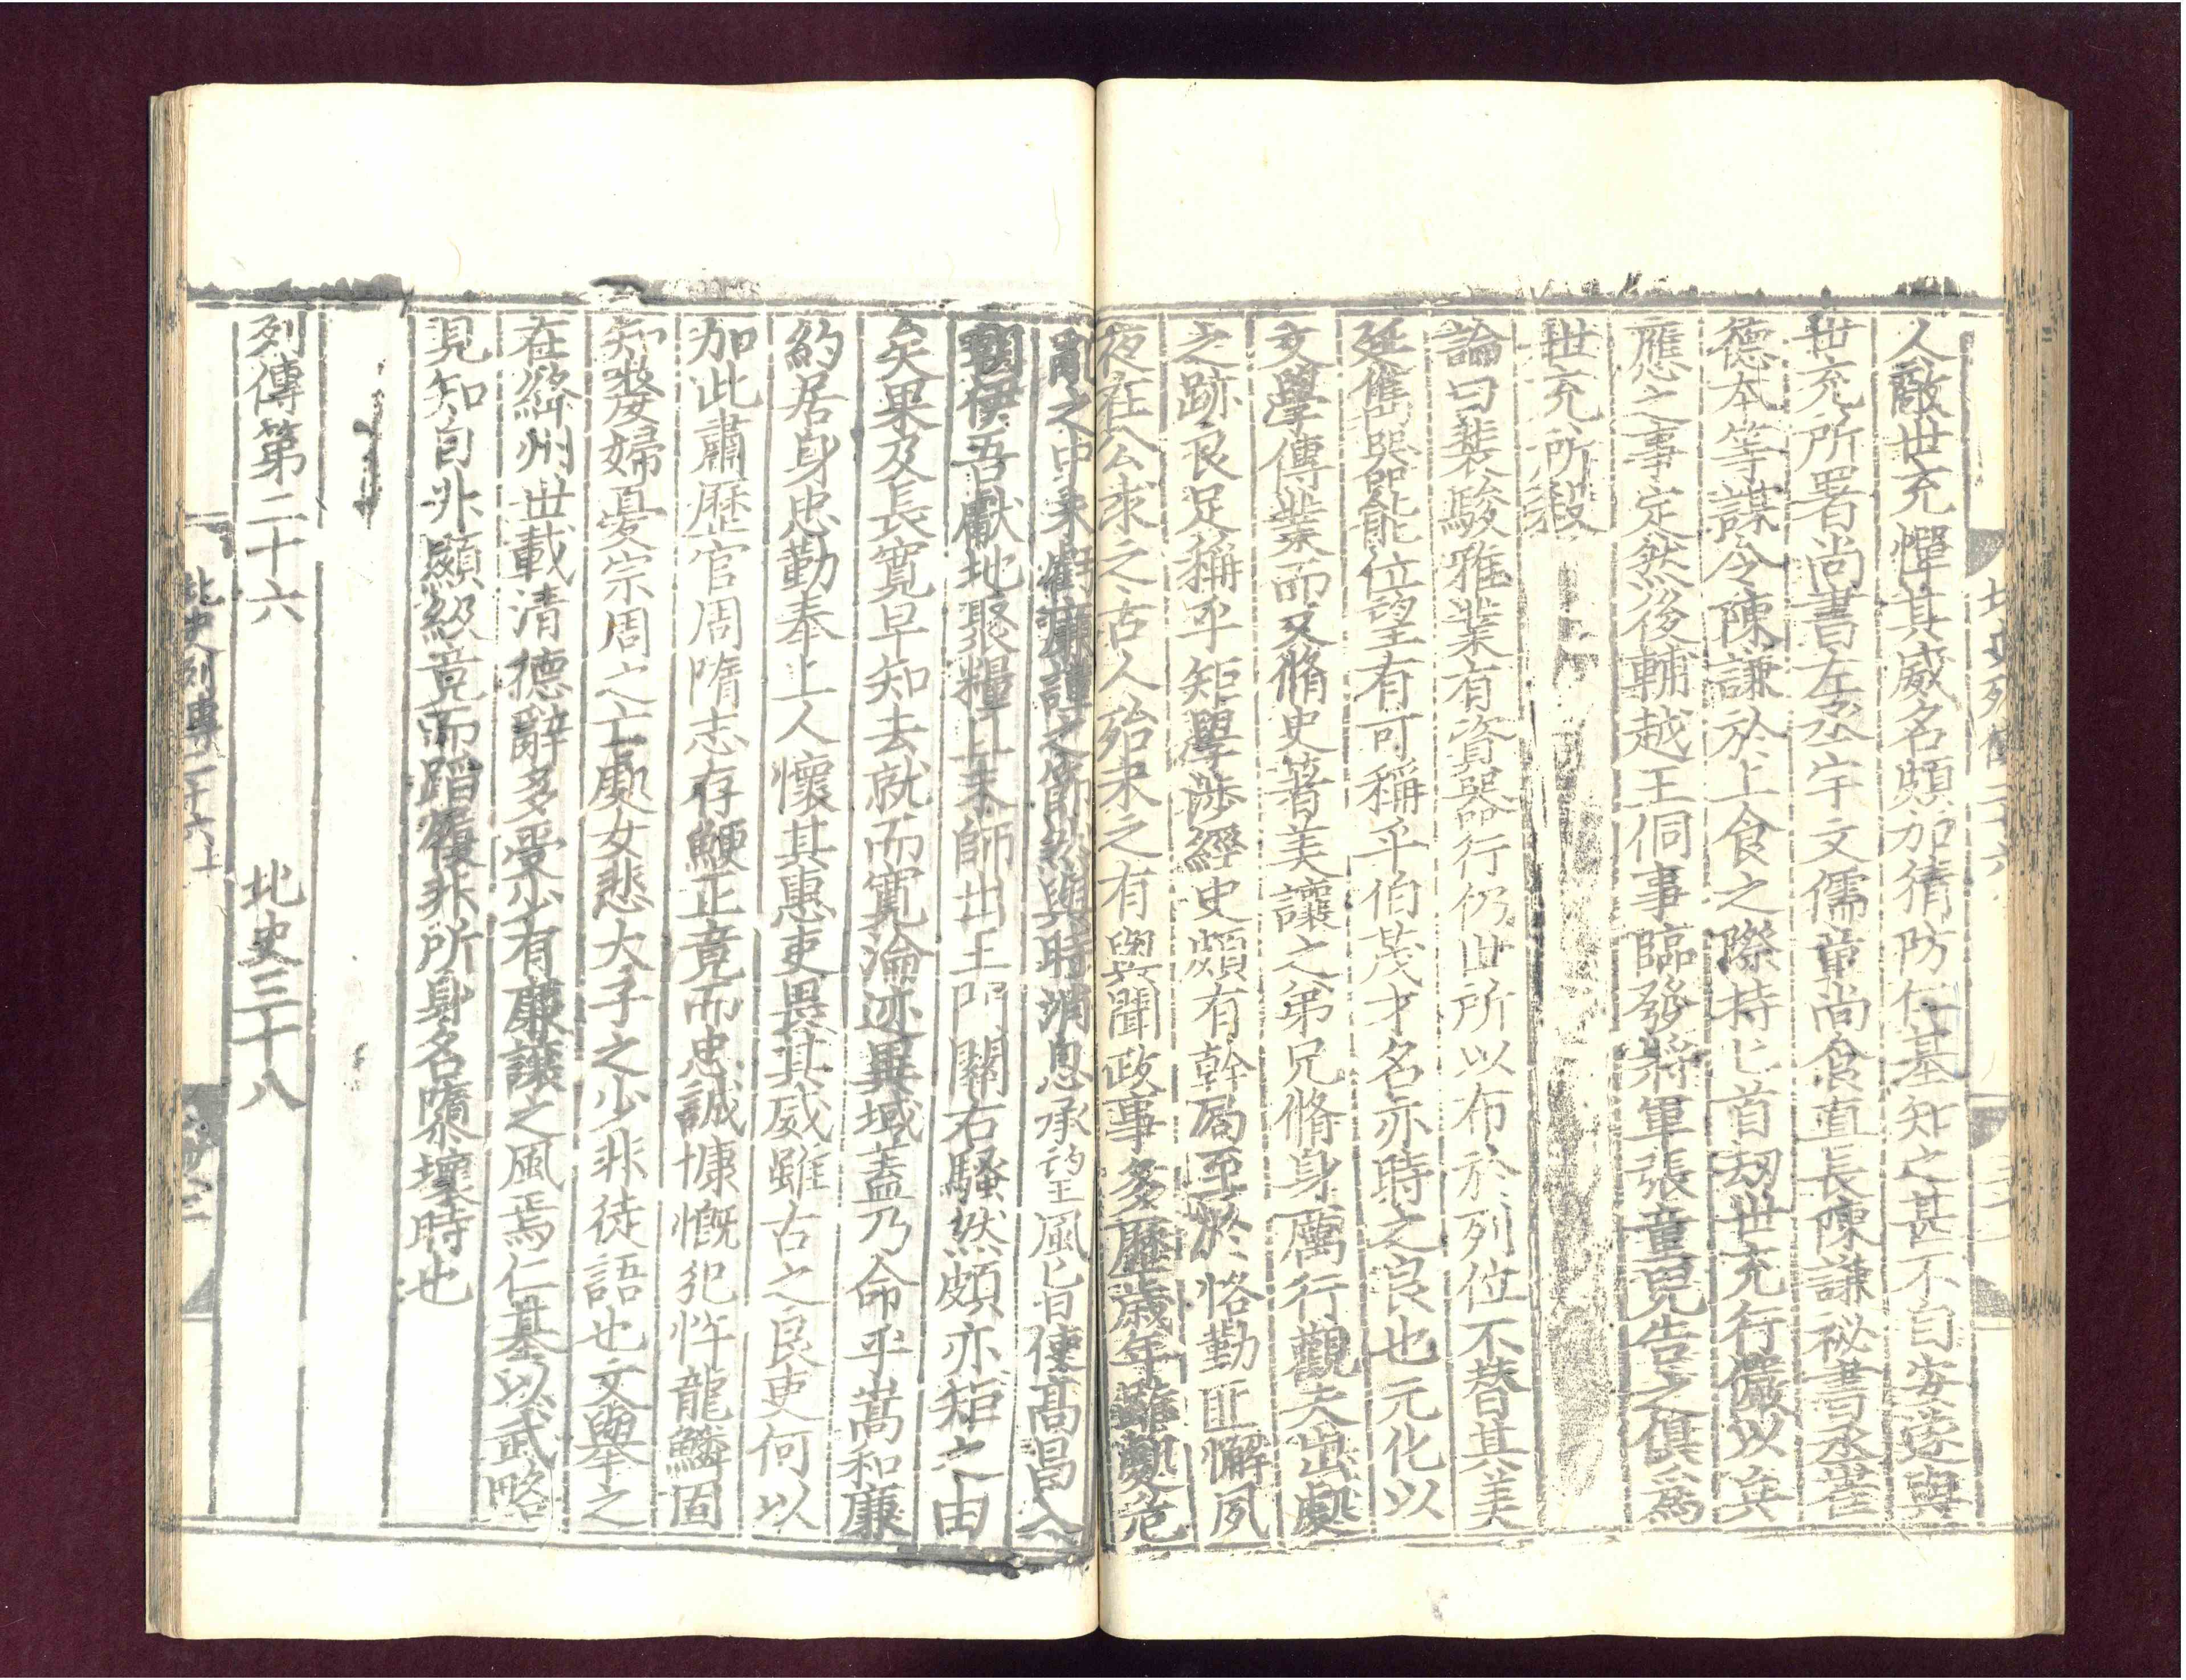 人敵世充憚其威名頗加猜防仁基知之甚不自安遂與
世充所署尚書左丞宇文儒童尚食直長陳謙祕書丞崔
德本等謀令陳謙於上食之際持匕首刼世充行儼以兵
應之事定然後輔越王侗事臨發將軍張童兒告之俱爲
世充所殺
論曰裴駿雅業有資器行仍世所以布於列位不替其美
延儁器能位望有可稱乎伯茂才名亦時之良也元化以
文學傳業而又脩史著美讓之弟兄脩身厲行觀夫出處
之跡良足稱乎矩學涉經史頗有幹局至於恪勤匪懈夙
夜在公求之古人殆未之有與聞政事多歷歲年雖處危
亂之中未虧廉謹之節然與時消息承望風旨使高昌入
朝伊吾獻地聚糧且末師出玉門關右騷然頗亦矩之由
矣果及長寬早知去就而寬淪迹異域蓋乃命乎嵩和廉
約居身忠勤奉上人懷其惠吏畏其威雖古之良吏何以
加此肅歷官周隋志存鯁正竟而忠誠慷慨犯忤龍鱗固
知嫠婦憂宗周之亡處女悲太子之少非徒語也文舉之
在絳州世載清德辭多受少有廉讓之風焉仁基以武略
見知自非顯級竟而蹈履非所身名隳壞時也
列傳第二十六　　　北史三十八
北史列傳二十六上